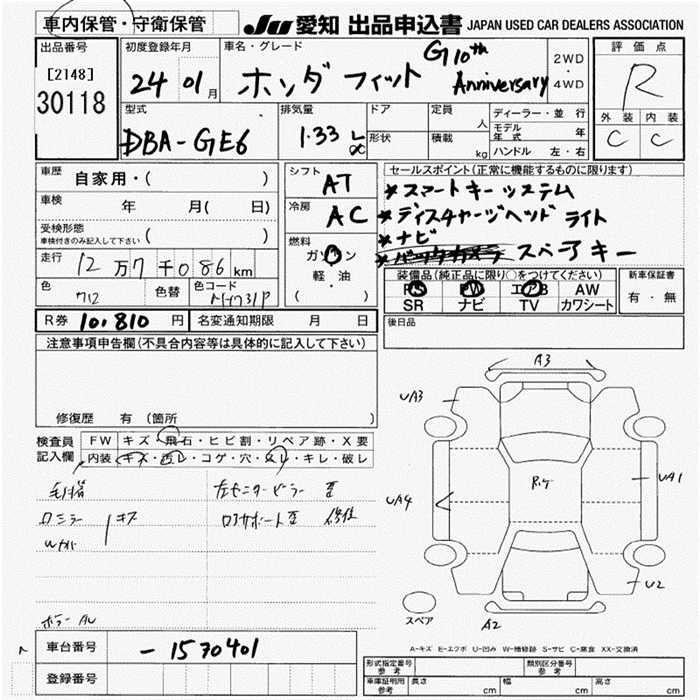 車内保管・守衛保管
JU 愛知 出品申込書 JAPAN USED CAR DEALERS ASSOCIATION
出品番号
[2148]
30118
初度登録年月
24 01 月
車名・グレード
ホンダ フィット G 10th Anniversary
2WD
・
4WD
評価点
R
外装 内装
C C
型式
DBA-GE6
排気量
1.33 L
cc
ドア
形状
定員
人
積載
kg
ディーラー・並行
モデル年式 年
ハンドル 左・右
車歴
自家用・( )
車検
年 月( 日)
受検形態
車検付きのみ記入して下さい ( )
走行
12 万 7 千 086 km
色
色替
色コード
シフト
AT
冷房
AC
燃料
ガソリン
軽・油
( )
セールスポイント(正常に機能するものに限ります)
*スマートキーシステム
*ディスチャージヘッドライト
*ナビ
*バックカメラ スペアキー
装備品(純正品に限り○をつけてください)
PS PW エアB AW
SR ナビ TV カワシート
新車保証書
有・無
R券 10,810 円
名変通知期限 月 日
後日品
注意事項申告欄(不具合内容等は具体的に記入して下さい)
修復歴 有 (箇所 )
検査員
記入欄
FW キズ・飛石・ヒビ割・リペア跡・X要
内装 キズ・汚レ・コゲ・穴・スレ・キレ・破レ
左センターピラー
ロアサポート 修正
キズ
A3
UA3
UA4
UA1
U2
A2
スペア
A-キズ E-エクボ U-凹み W-補修跡 S-サビ C-腐食 XX-交換済
車台番号
-1570401
登録番号
形式指定番号
参考
類別区分番号
参考
車庫証明用
参考
長さ cm
幅 cm
高さ cm